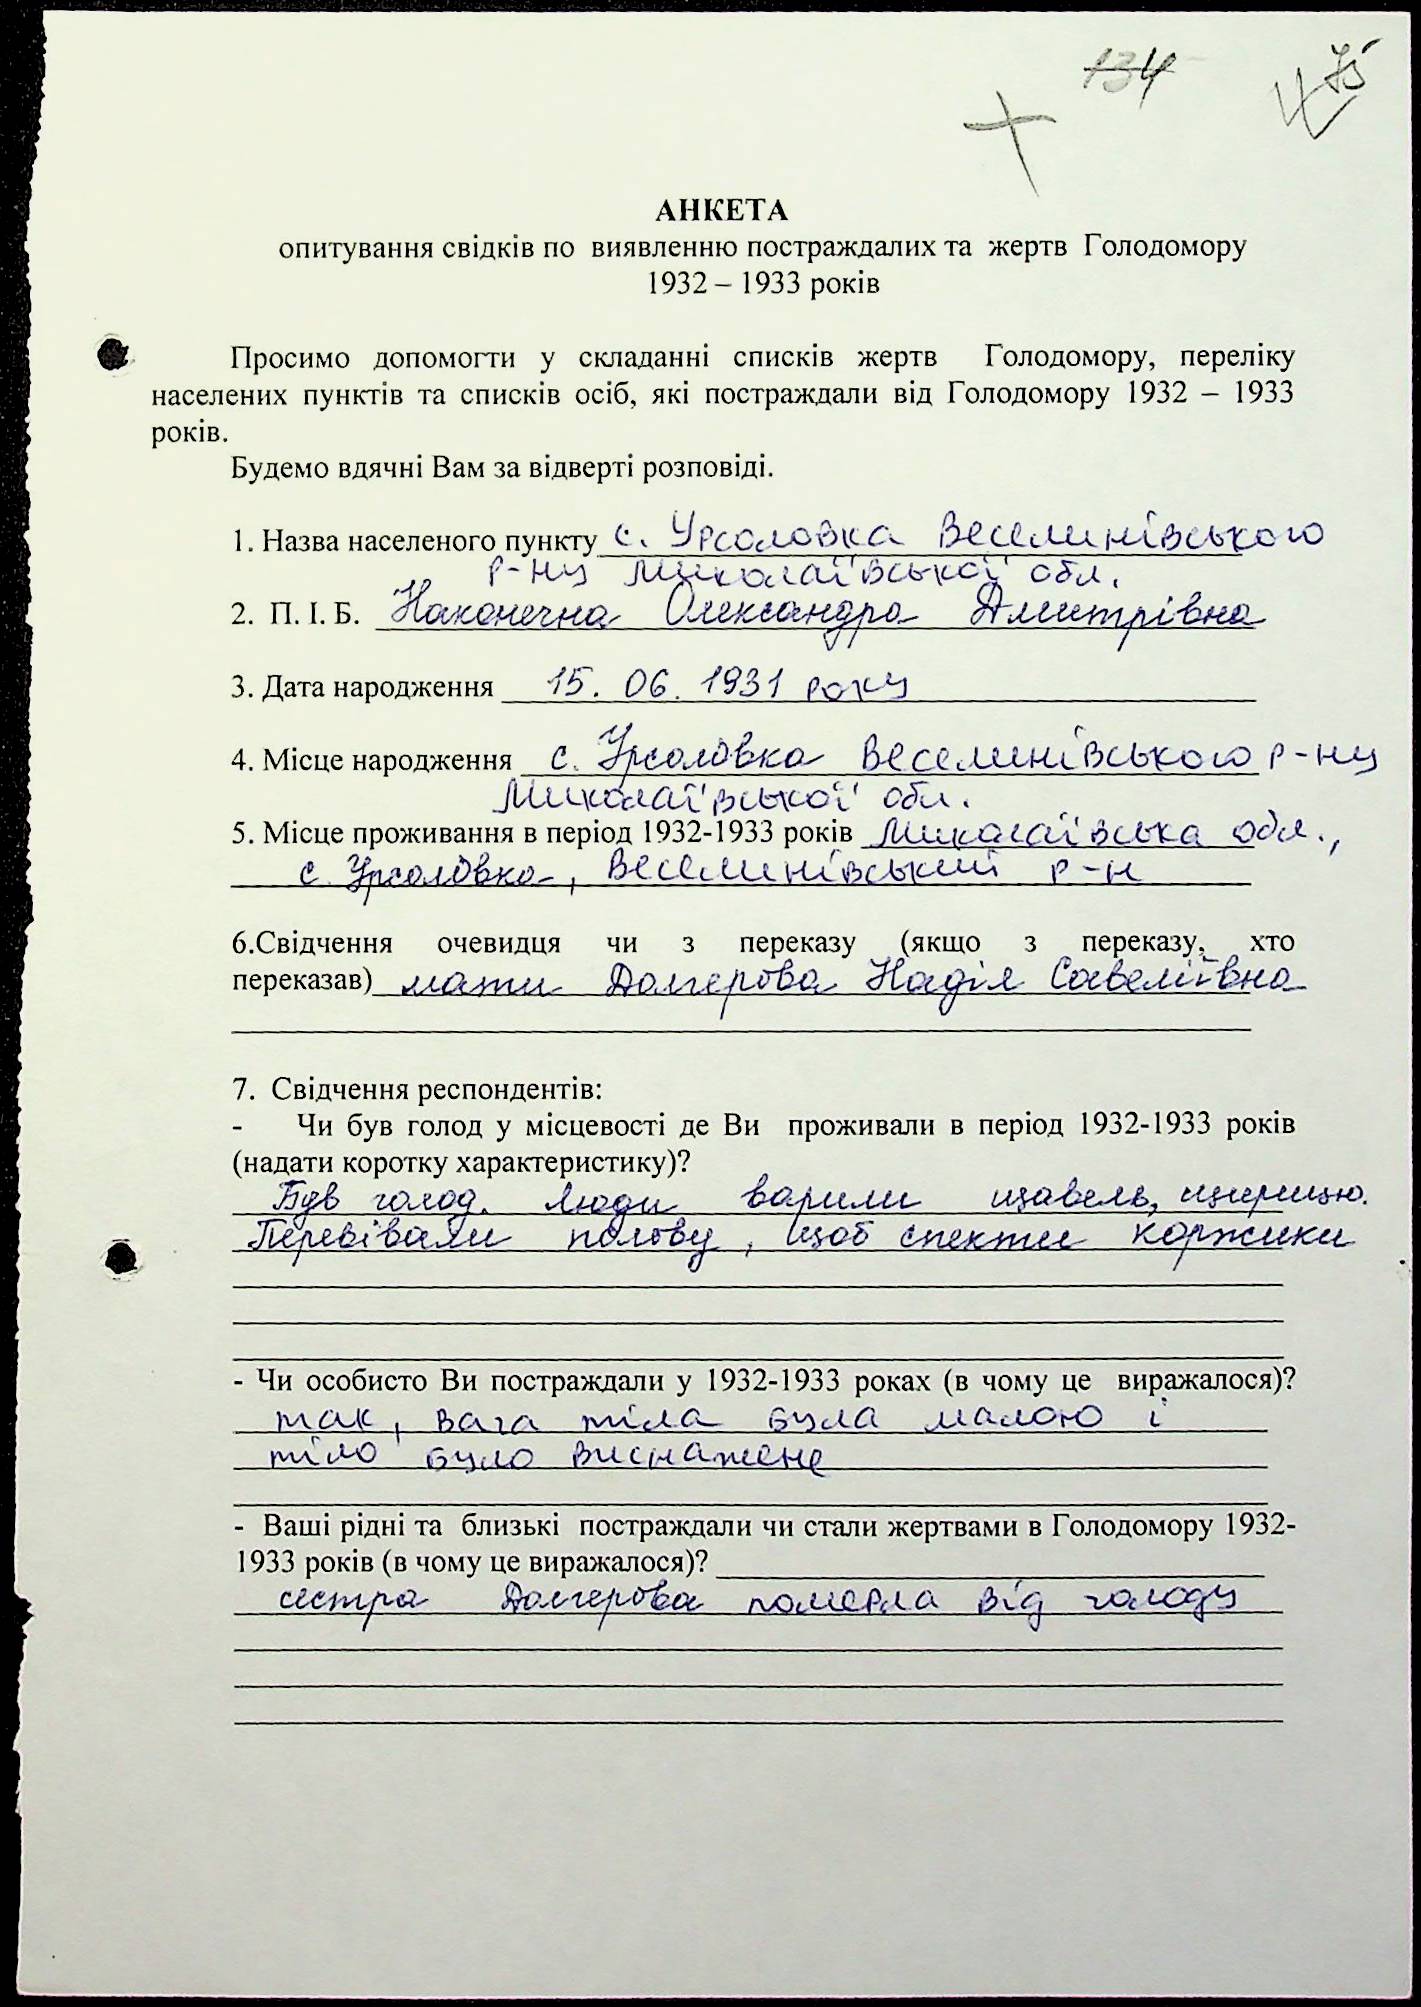 134
75
АНКЕТА
опитування свідків по виявленню постраждалих та жертв Голодомору
1932 – 1933 років
Просимо допомогти у складанні списків жертв Голодомору, переліку
населених пунктів та списків осіб, які постраждали від Голодомору 1932 – 1933
років.
Будемо вдячні Вам за відверті розповіді.
1. Назва населеного пункту с. Урсоловка Веселинівського
р-ну Миколаївської обл.
2. П. І. Б. Наконечна Олександра Дмитрівна
3. Дата народження 15. 06. 1931 року
4. Місце народження с. Урсоловка Веселинівського р-ну
Миколаївської обл.
5. Місце проживання в період 1932-1933 років Миколаївська обл.,
с. Урсоловка, Веселинівський р-н
6.Свідчення очевидця чи з переказу (якщо з переказу, хто
переказав) мати Долгерова Надія Савеліївна
7. Свідчення респондентів:
- Чи був голод у місцевості де Ви проживали в період 1932-1933 років
(надати коротку характеристику)?
Був голод. Люди варили щавель, щирицю.
Перевівали полову, щоб спекти коржики
- Чи особисто Ви постраждали у 1932-1933 роках (в чому це виражалося)?
так, вага тіла була малою і
тіло було виснажене
- Ваші рідні та близькі постраждали чи стали жертвами в Голодомору 1932-
1933 років (в чому це виражалося)?
сестра Долгерова померла від голоду